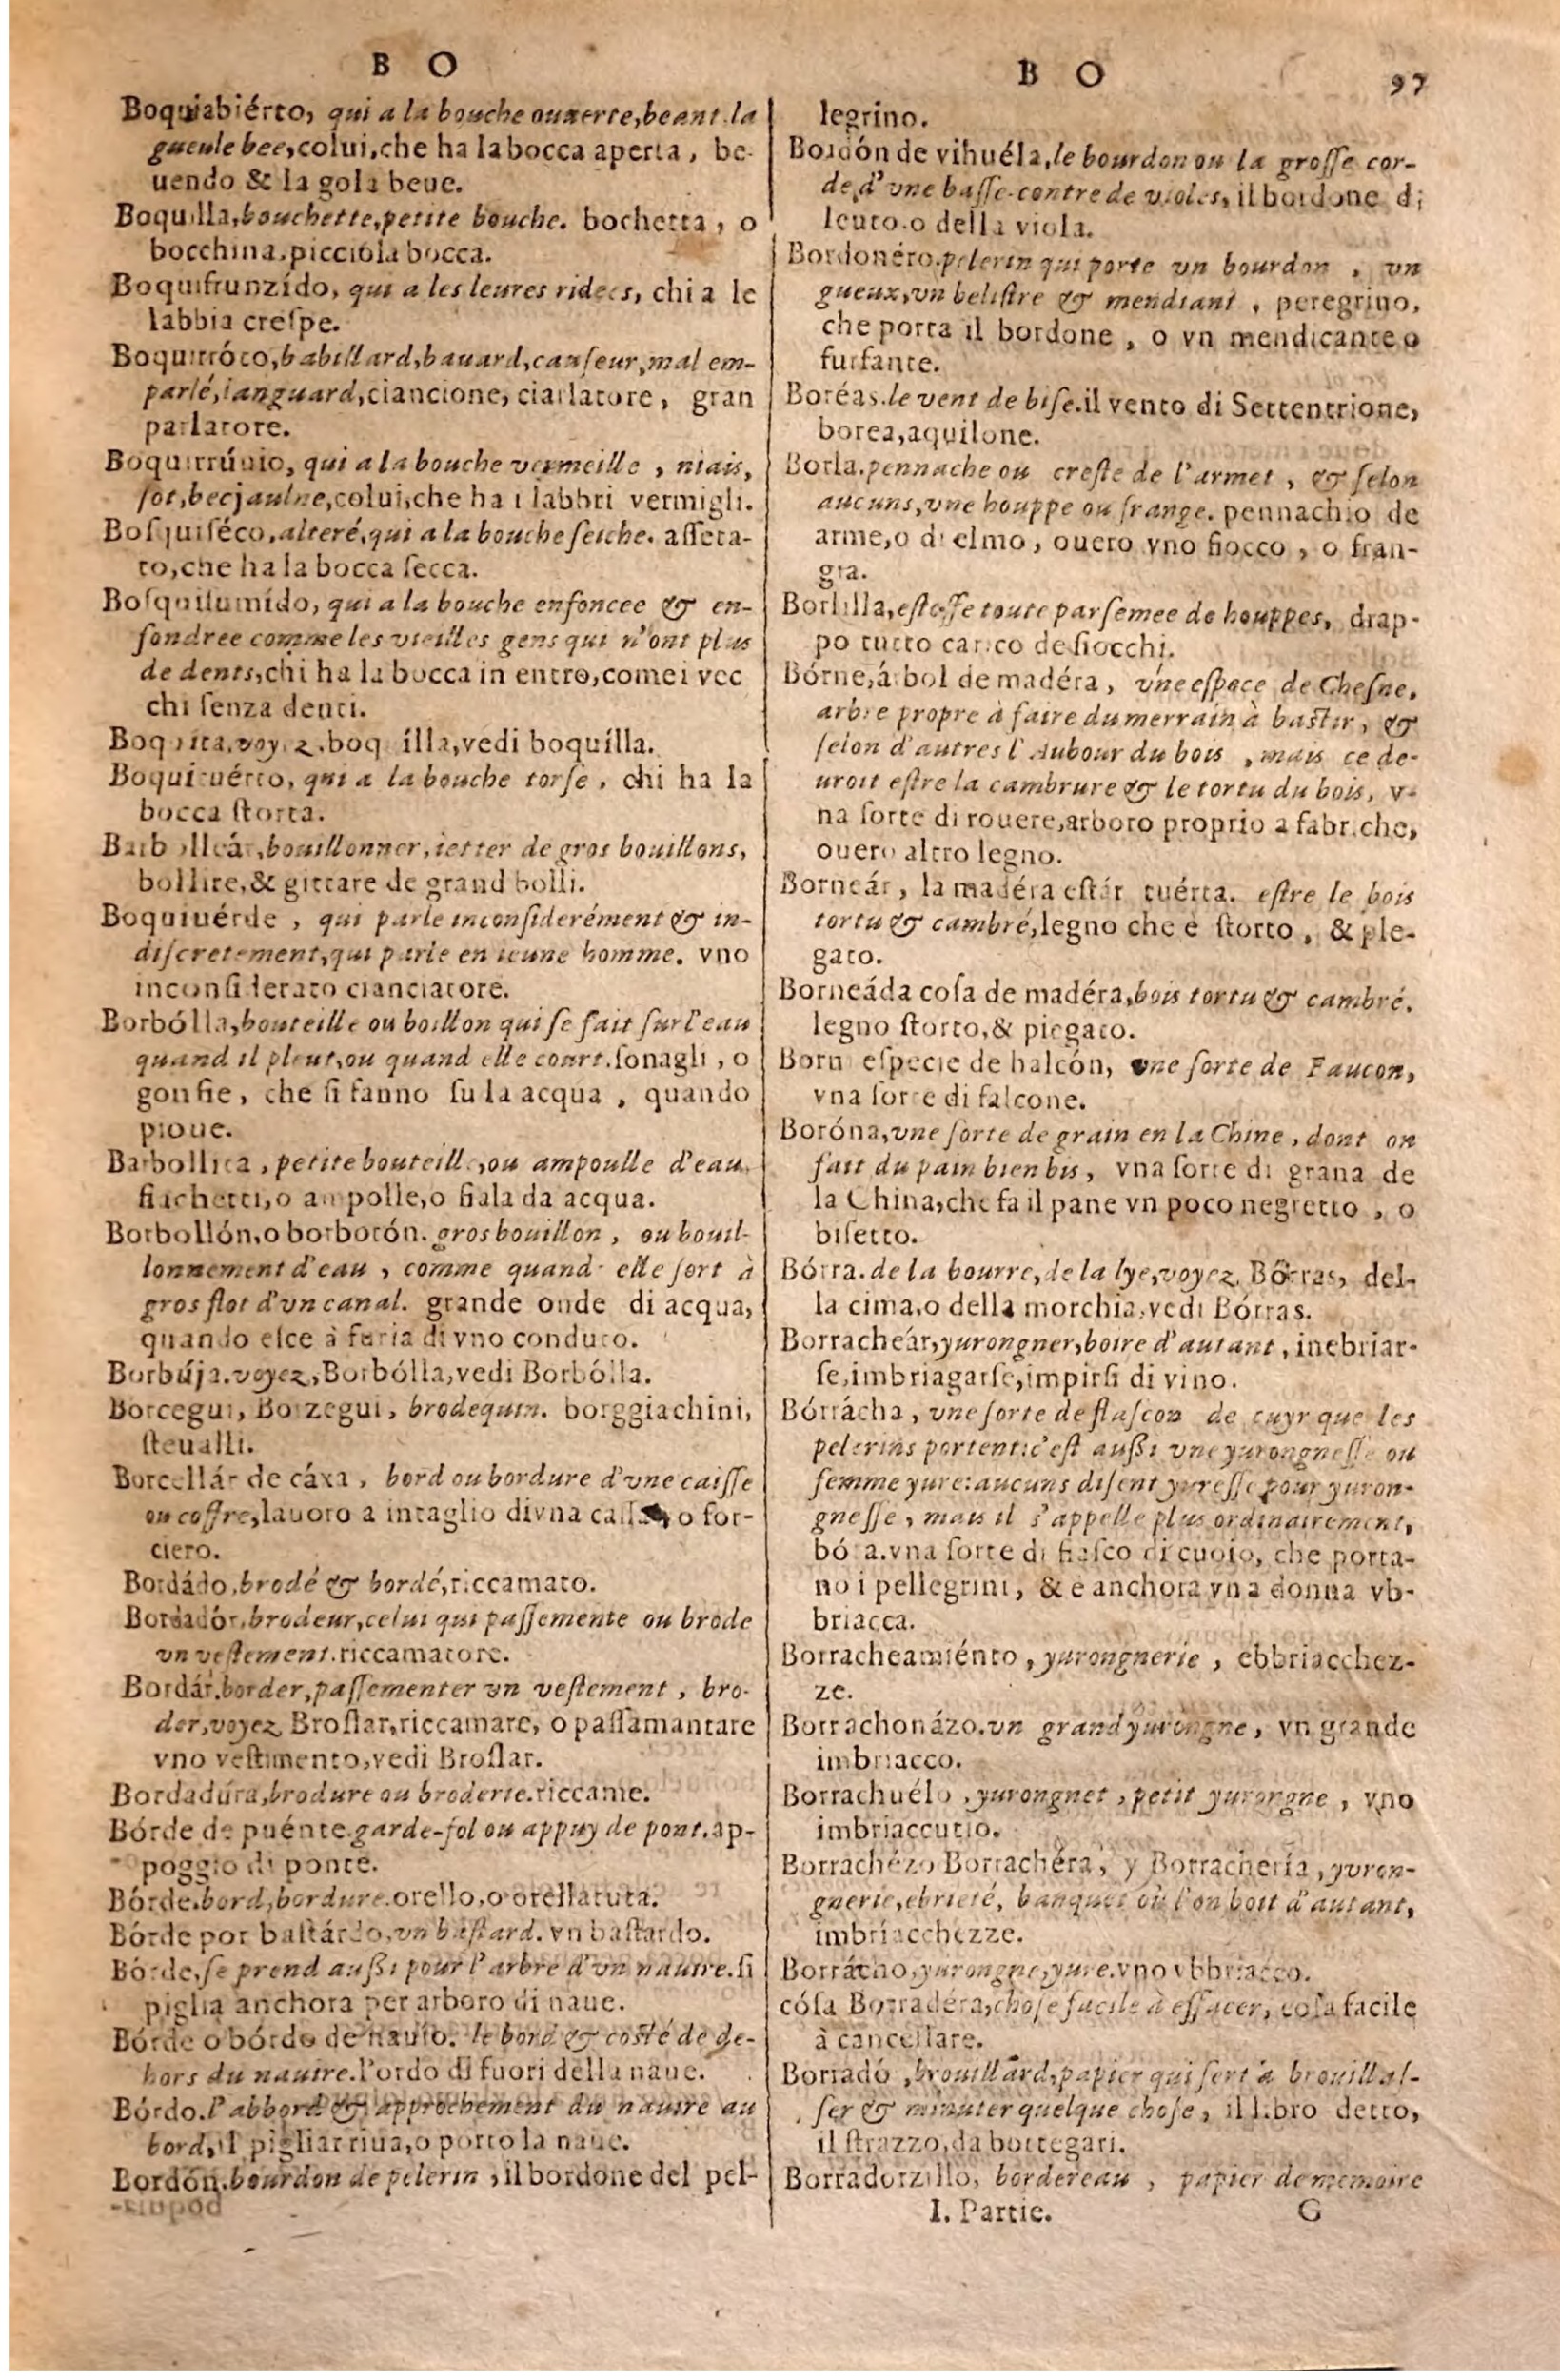 B O
Boquiabiérto, qui a la bouche ouuerte, beant la
gueule bee, colui, che ha la bocca aperta, be-
uendo & la gola beue.
Boquilla, bouchette, petite bouche. bochetta, o
bocchina, picciola bocca.
Boquifrunzído, qui a les leures ridees, chi a le
labbia creſpe.
Boquirróto, babillard, bauard, cauſeur, mal em-
parlé, languard, ciancione, ciarlatore, gran
parlatore.
Boquirrúuio, qui a la bouche vermeille, niais,
ſot, becjaulne, colui, che ha i labbri vermigli.
Boſquiſéco, alteré, qui a la bouche ſeiche. aſſeta-
to, che ha la bocca ſecca.
Boſquiſumído, qui a la bouche enfoncee & en-
fondree comme les vieilles gens qui n'ont plus
de dents, chi ha la bocca in entro, come i vec
chi ſenza denti.
Boquita. voyez. boquílla, vedi boquílla.
Boquituérto, qui a la bouche torſe, chi ha la
bocca ſtorta.
Barbolleár, bouillonner, ietter de gros bouillons,
bollire, & gittare de grand bolli.
Boquiuérde, qui parle inconſiderément & in-
diſcretement, qui parle en ieune homme. vno
inconſiderato cianciatore.
Borbólla, bouteille ou boillon qui ſe fait ſur l'eau
quand il pleut, ou quand elle court. ſonagli, o
gonfie, che ſi fanno ſu la acqua, quando
pioue.
Barbollita, petite bouteille, ou ampoulle d'eau.
fiachetti, o ampolle, o fiala da acqua.
Borbollón, o borbotón. gros bouillon, ou bouil-
lonnement d'eau, comme quand elle ſort à
gros flot d'vn canal. grande onde di acqua,
quando eſce à furia di vno conduto.
Borbúja. voyez, Borbólla, vedi Borbólla.
Borcegui, Borzegui, brodequin. borggiachini,
ſteualli.
Borcellár de cáxa, bord ou bordure d'vne caiſſe
ou coffre, lauoro a intaglio di vna caſſa, o for-
ciero.
Bordádo, brodé & bordé, riccamato.
Bordadór, brodeur, celui qui paſſemente ou brode
vn veſtement. riccamatore.
Bordár, border, paſſementer vn veſtement, bro-
der, voyez Broſlar, riccamare, o paſſamantare
vno veſtimento, vedi Broſlar.
Bordadúra, brodure ou broderie. riccame.
Bórde de puénte. garde-fol ou appuy de pont. ap-
poggio di ponte.
Bórde. bord, bordure. orello, o orellatura.
Bórde por baſtárdo, vn baſtard. vn baſtardo.
Bórde, ſe prend auſſi pour l'arbre d'vn nauire. ſi
piglia anchora per arboro di naue.
Bórde o bórdo de nauío. le bord & coſté de de-
hors du nauire. l'ordo di fuori della naue.
Bórdo. l'abbord & approchement du nauire au
bord, il pigliar riua, o porto la naue.
Bordón. bourdon de pelerin, il bordone del pel-
B O 97
legrino.
Bordón de vihuéla, le bourdon ou la groſſe cor-
de d'vne baſſe-contre de violes, il bordone di
leuto. o della viola.
Bordonéro. pelerin qui porte vn bourdon, vn
gueux, vn beliſtre & mendiant, peregrino,
che porta il bordone, o vn mendicante o
furfante.
Boréas. le vent de biſe. il vento di Settentrione,
borea, aquilone.
Borla. pennache ou creſte de l'armet, & ſelon
aucuns, vne houppe ou frange. pennachio de
arme, o di elmo, ouero vno fiocco, o fran-
gia.
Borlilla, eſtoffe toute parſemee de houppes, drap-
po tutto carico de fiocchi.
Bórne, árbol de madéra, vne eſpece de Cheſne.
arbre propre à faire du merrain à baſtir, &
ſelon d'autres l'Aubour du bois, mais ce de-
uroit eſtre la cambrure & le tortu du bois, v-
na ſorte di rouere, arboro proprio a fabriche,
ouero altro legno.
Borneár, la madéra eſtár tuérta. eſtre le bois
tortu & cambré, legno che è ſtorto, & ple-
gato.
Borneáda coſa de madéra, bois tortu & cambré.
legno ſtorto, & piegato.
Borni eſpecie de halcón, vne ſorte de Faucon,
vna ſorte di falcone.
Boróna, vne ſorte de grain en la Chine, dont on
fait du pain bien bis, vna ſorte di grana de
la China, che fa il pane vn poco negretto, o
biſetto.
Bórra. de la bourre, de la lye, voyez Bórras, del-
la cima, o della morchia, vedi Bórras.
Borracheár, yurongner, boire d'autant, inebriar-
ſe, imbriagarſe, impirſi di vino.
Bórrácha, vne ſorte de flaſcon de cuyr que les
pelerins portent: c'eſt auſſi vne yurongneſſe ou
femme yure: aucuns diſent yureſſe pour yuron-
gneſſe, mais il s'appelle plus ordinairement,
bóta. vna ſorte di fiaſco di cuoio, che porta-
no i pellegrini, & è anchora vna donna vb-
briacca.
Borracheamiénto, yurongnerie, ebbriacchez-
ze.
Borrachonázo. vn grand yurongne, vn grande
imbriacco.
Borrachuélo, yurongnet, petit yurongne, vno
imbriaccutio.
Borrachézo Borrachéra, y Borrachería, yuron-
gnerie, ebrieté, banquet où l'on boit d'autant,
imbríacchezze.
Borrácho, yurongne, yure. vno vbbriacco.
cóſa Borradéra, choſe facile à effacer, coſa facile
à cancellare.
Borradó, brouillard, papier qui ſert à brouillaſ-
ſer & minuter quelque choſe, il libro detto,
il ſtrazzo, da bottegari.
Borradorzillo, bordereau, papier de memoire
I. Partie. G